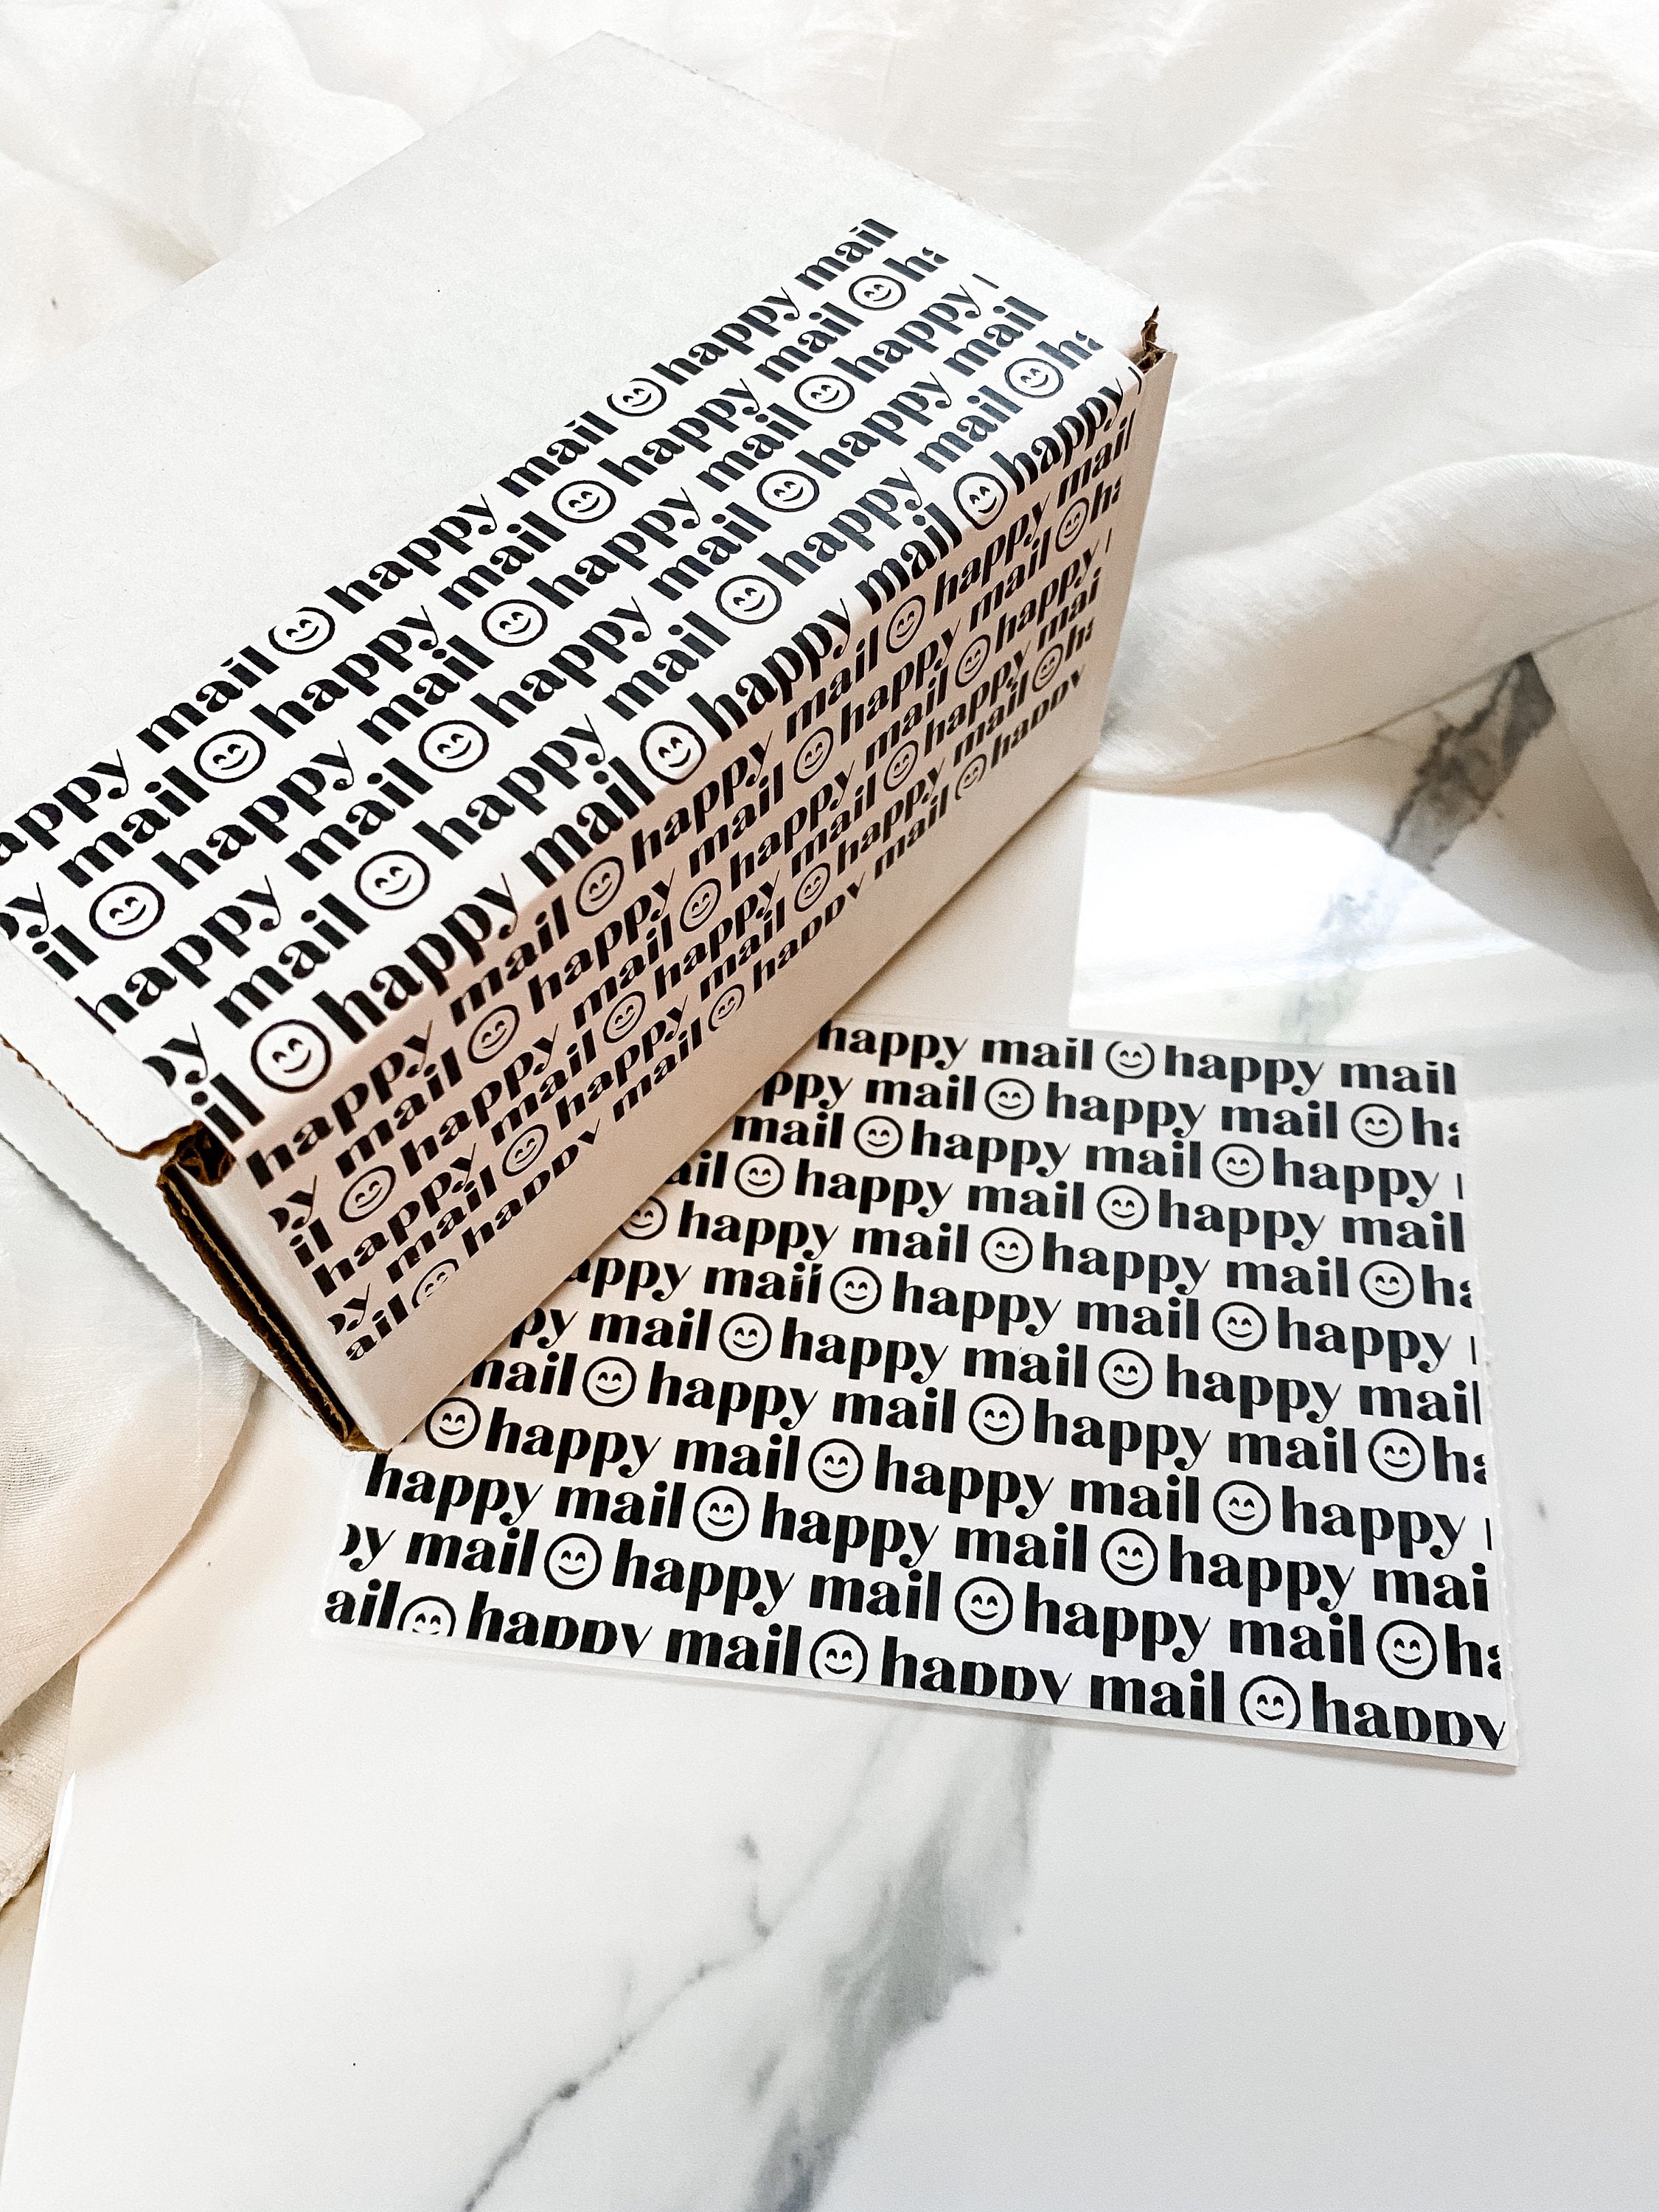 appy mail happy mail happy mail
py mail happy mail happy mail ha
il happy mail happy mail happy
happy mail happy mail happy mail
py mail happy mail happy mail ha
il happy mail happy mail happy
happy mail happy mail happy mail
py mail happy mail happy mail ha
il happy mail happy mail happy
happy mail happy mail happy mai
py mail happy mail happy mail ha
ail happy mail happy mail happy
happy mail happy mail
ppy mail happy mail ha
mail happy mail happy
ail happy mail happy mail
happy mail happy mail ha
appy mail happy mail happy
py mail happy mail happy mail
mail happy mail happy mail ha
happy mail happy mail happy
happy mail happy mail happy mai
py mail happy mail happy mail ha
ail happy mail happy mail happy